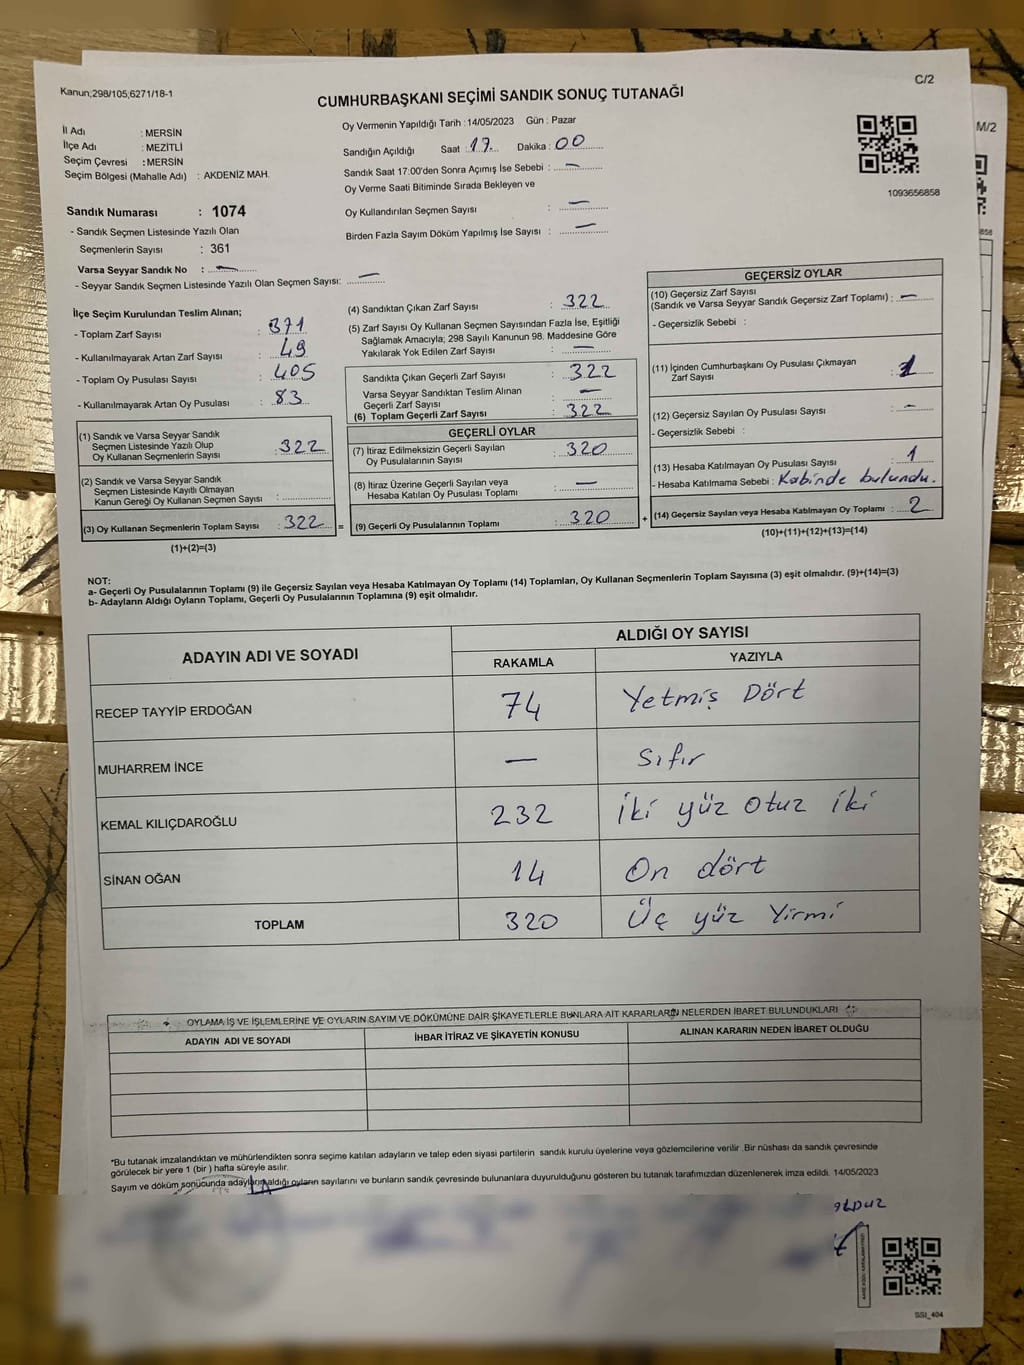 Kanun;298/105;6271/18-1
C/2
CUMHURBAŞKANI SEÇİMİ SANDIK SONUÇ TUTANAĞI
İl Adı : MERSİN
İlçe Adı : MEZİTLİ
Seçim Çevresi : MERSİN
Seçim Bölgesi (Mahalle Adı) : AKDENİZ MAH.
Sandık Numarası : 1074
- Sandık Seçmen Listesinde Yazılı Olan
Seçmenlerin Sayısı : 361
Varsa Seyyar Sandık No : —
- Seyyar Sandık Seçmen Listesinde Yazılı Olan Seçmen Sayısı: —
Oy Vermenin Yapıldığı Tarih : 14/05/2023 Gün : Pazar
Sandığın Açıldığı Saat : 17 Dakika : 00
Sandık Saat 17:00'den Sonra Açımış İse Sebebi : —
Oy Verme Saati Bitiminde Sırada Bekleyen ve
Oy Kullandırılan Seçmen Sayısı : —
Birden Fazla Sayım Döküm Yapılmış İse Sayısı : —
1093656858
M/2
858
İlçe Seçim Kurulundan Teslim Alınan;
- Toplam Zarf Sayısı : 371
- Kullanılmayarak Artan Zarf Sayısı : 49
- Toplam Oy Pusulası Sayısı : 405
- Kullanılmayarak Artan Oy Pusulası : 83
(1) Sandık ve Varsa Seyyar Sandık
Seçmen Listesinde Yazılı Olup
Oy Kullanan Seçmenlerin Sayısı : 322
(2) Sandık ve Varsa Seyyar Sandık
Seçmen Listesinde Kayıtlı Olmayan
Kanun Gereği Oy Kullanan Seçmen Sayısı :
(3) Oy Kullanan Seçmenlerin Toplam Sayısı : 322 =
(1)+(2)=(3)
(4) Sandıktan Çıkan Zarf Sayısı : 322
(5) Zarf Sayısı Oy Kullanan Seçmen Sayısından Fazla İse, Eşitliği
Sağlamak Amacıyla; 298 Sayılı Kanunun 98. Maddesine Göre
Yakılarak Yok Edilen Zarf Sayısı : —
Sandıkta Çıkan Geçerli Zarf Sayısı : 322
Varsa Seyyar Sandıktan Teslim Alınan
Geçerli Zarf Sayısı : —
(6) Toplam Geçerli Zarf Sayısı : 322
GEÇERLİ OYLAR
(7) İtiraz Edilmeksizin Geçerli Sayılan
Oy Pusulalarının Sayısı : 320
(8) İtiraz Üzerine Geçerli Sayılan veya
Hesaba Katılan Oy Pusulası Toplamı : —
(9) Geçerli Oy Pusulalarının Toplamı : 320 +
GEÇERSİZ OYLAR
(10) Geçersiz Zarf Sayısı
(Sandık ve Varsa Seyyar Sandık Geçersiz Zarf Toplamı) : —
- Geçersizlik Sebebi :
(11) İçinden Cumhurbaşkanı Oy Pusulası Çıkmayan
Zarf Sayısı : 1
(12) Geçersiz Sayılan Oy Pusulası Sayısı : —
- Geçersizlik Sebebi :
(13) Hesaba Katılmayan Oy Pusulası Sayısı : 1
- Hesaba Katılmama Sebebi : Kabinde bulundu.
(14) Geçersiz Sayılan veya Hesaba Katılmayan Oy Toplamı : 2
(10)+(11)+(12)+(13)=(14)
NOT:
a- Geçerli Oy Pusulalarının Toplamı (9) ile Geçersiz Sayılan veya Hesaba Katılmayan Oy Toplamı (14) Toplamları, Oy Kullanan Seçmenlerin Toplam Sayısına (3) eşit olmalıdır. (9)+(14)=(3)
b- Adayların Aldığı Oyların Toplamı, Geçerli Oy Pusulalarının Toplamına (9) eşit olmalıdır.
ADAYIN ADI VE SOYADI
ALDIĞI OY SAYISI
RAKAMLA YAZIYLA
RECEP TAYYİP ERDOĞAN 74 Yetmiş Dört
MUHARREM İNCE — Sıfır
KEMAL KILIÇDAROĞLU 232 İki yüz otuz iki
SİNAN OĞAN 14 On dört
TOPLAM 320 Üç yüz Yirmi
OYLAMA İŞ VE İŞLEMLERİNE VE OYLARIN SAYIM VE DÖKÜMÜNE DAİR ŞİKAYETLERLE BUNLARA AİT KARARLARIN NELERDEN İBARET BULUNDUKLARI
ADAYIN ADI VE SOYADI İHBAR İTİRAZ VE ŞİKAYETİN KONUSU ALINAN KARARIN NEDEN İBARET OLDUĞU
*Bu tutanak imzalandıktan ve mühürlendikten sonra seçime katılan adayların ve talep eden siyasi partilerin sandık kurulu üyelerine veya gözlemcilerine verilir .Bir nüshası da sandık çevresinde
görülecek bir yere 1 (bir ) hafta süreyle asılır.
Sayım ve döküm sonucunda adayların aldığı oyların sayılarını ve bunların sandık çevresinde bulunanlara duyurulduğunu gösteren bu tutanak tarafımızdan düzenlenerek imza edildi. 14/05/2023